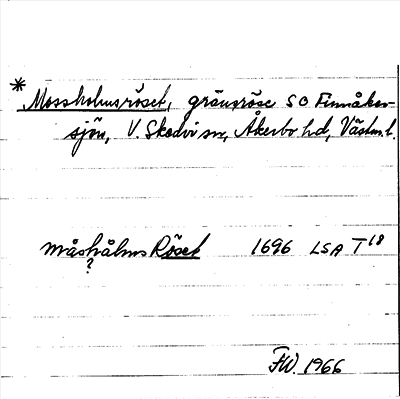 * Mossholmsröset, gränsröse SO Finnåker-
sjön, V. Skedvi sn, Åkerbo hd, Västm. l.
måshålms Röset 1696 LSA T18
?
FW. 1966